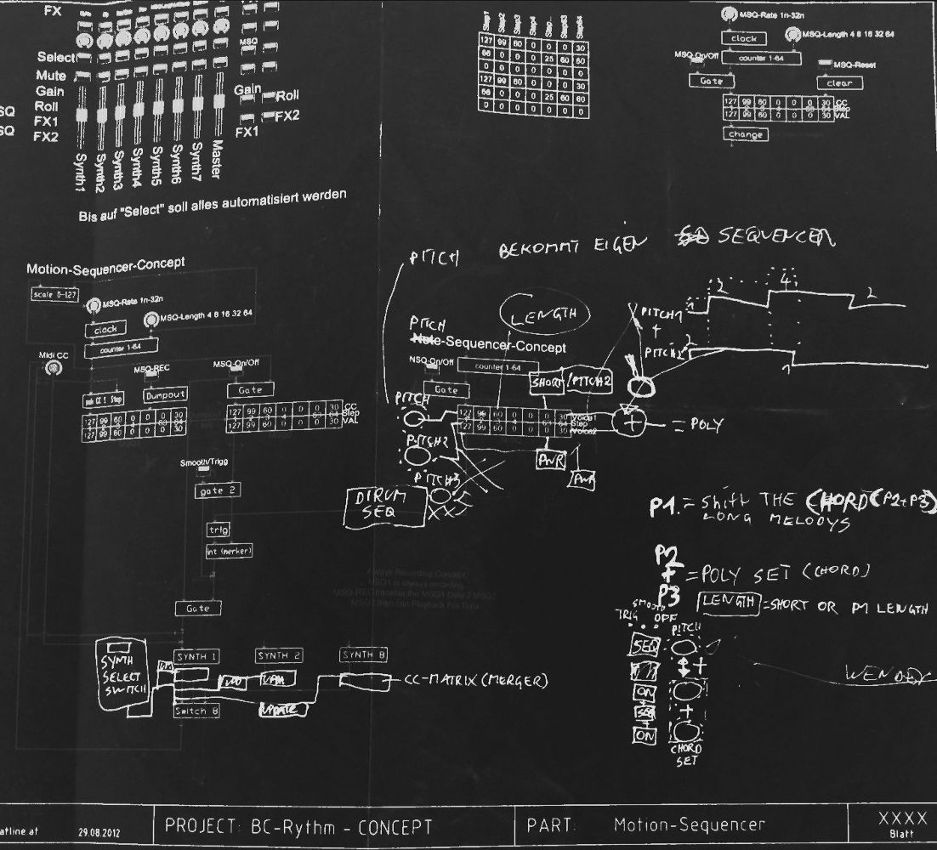 FX
Select
Mute
Gain
Roll
FX1
FX2
SQ
SQ
MSQ
Gain
Roll
FX2
FX1
Synth1
Synth2
Synth3
Synth4
Synth5
Synth6
Synth7
Master
Bis auf "Select" soll alles automatisiert werden
Step1 Step2 Step3 Step4 Step... Step63 Step64
127 99 60 0 0 0 30
66 0 0 0 25 60 60
0 0 0 0 0 0 0
127 99 60 0 0 0 30
66 0 0 0 25 60 60
0 0 0 0 0 0 0
MSQ-Rate 1n-32n
clock
MSQ-Length 4 8 16 32 64
MSQ On/Off
counter 1-64
MSQ-Reset
Gate
clear
127 99 60 0 0 0 30 CC
Step
127 99 60 0 0 0 30 VAL
change
PITCH BEKOMMT EIGEN SEQUENCER
Motion-Sequencer-Concept
scale 0-127
MSQ-Rate 1n-32n
clock
MSQ-Length 4 8 16 32 64
counter 1-64
Midi CC
MSQ-REC
MSQ-On/Off
Dumpout
Gate
127 99 60 0 0 0 30
127 99 60 0 0 0 30
127 99 60 0 0 0 30 CC
Step
127 99 60 0 0 0 30 VAL
Smooth/Trigg
gate 2
trig
int (merker)
Gate
LENGTH
PITCH
Note-Sequencer-Concept
NSQ-On/Off
counter 1-64
Gate
SHORT / PITCH2
PITCH
127 99 60 0 0 0 30 Voice1
Step
127 99 60 0 0 0 30 Voice2
+
= POLY
PITCH2
PITCH3
PWR
PWR
DRUM
SEQ
2 4 2
1
PITCH1
+
PITCH2
2
1
P1 = Shift THE CHORD (P2+P3)
LONG MELODYS
P2
+
P3
= POLY SET (CHORD)
LENGTH = SHORT OR P1 LENGTH
SMOOTH
TRIG OFF
PITCH
SEQ
+
ON
+
SEQ
ON
CHORD
SET
SYNTH
SELECT
SWITCH
SYNTH 1
SYNTH 2
SYNTH 8
Switch 8
UPDATE
CC-MATRIX (MERGER)
29.08.2012
PROJECT: BC-Rythm - CONCEPT
PART: Motion-Sequencer
XXXX
Blatt